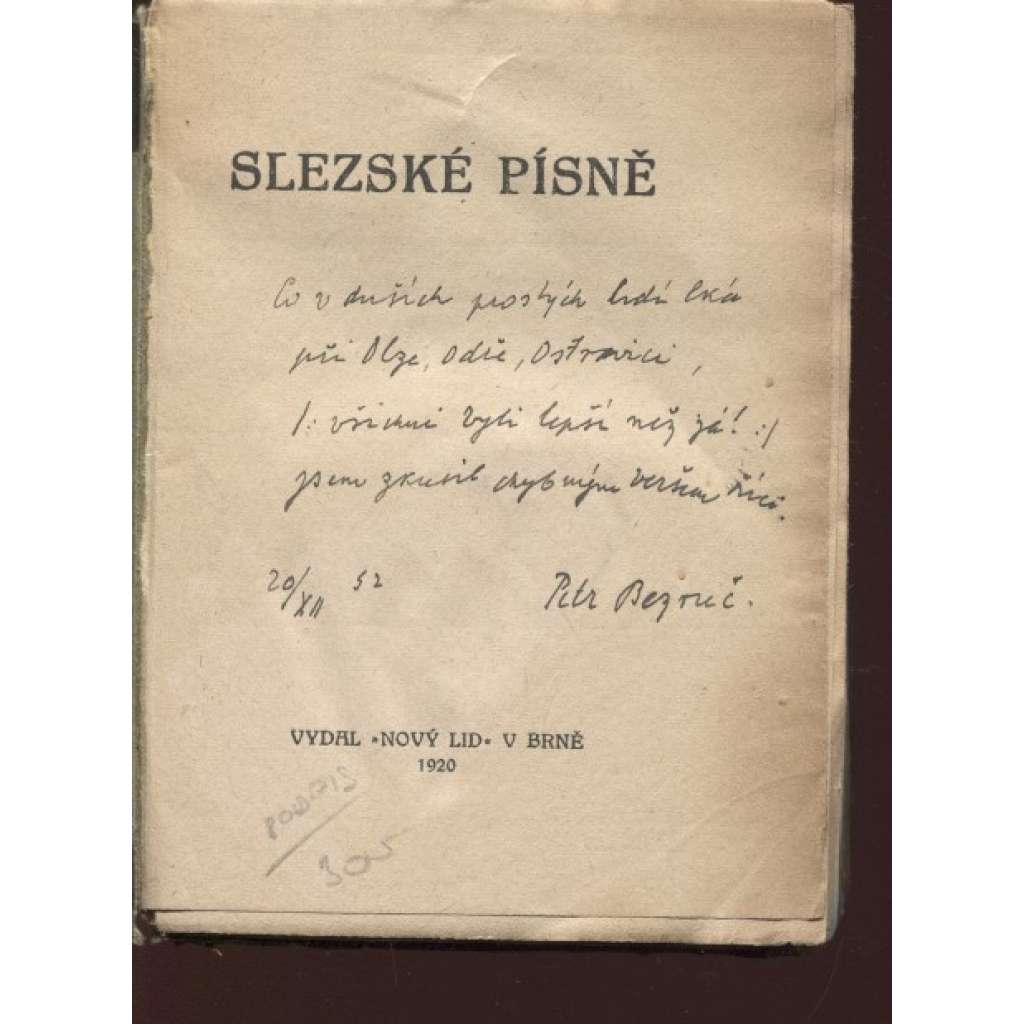 SLEZSKÉ PÍSNĚ
Co v duších prostých lidí lká
při Olze, Odře, Ostravici,
/: všichni byli lepší než já! :/
jsem zkusil chybným veršem říci.
20/XII 52 Petr Bezruč.
VYDAL »NOVÝ LID« V BRNĚ
1920
PODPIS